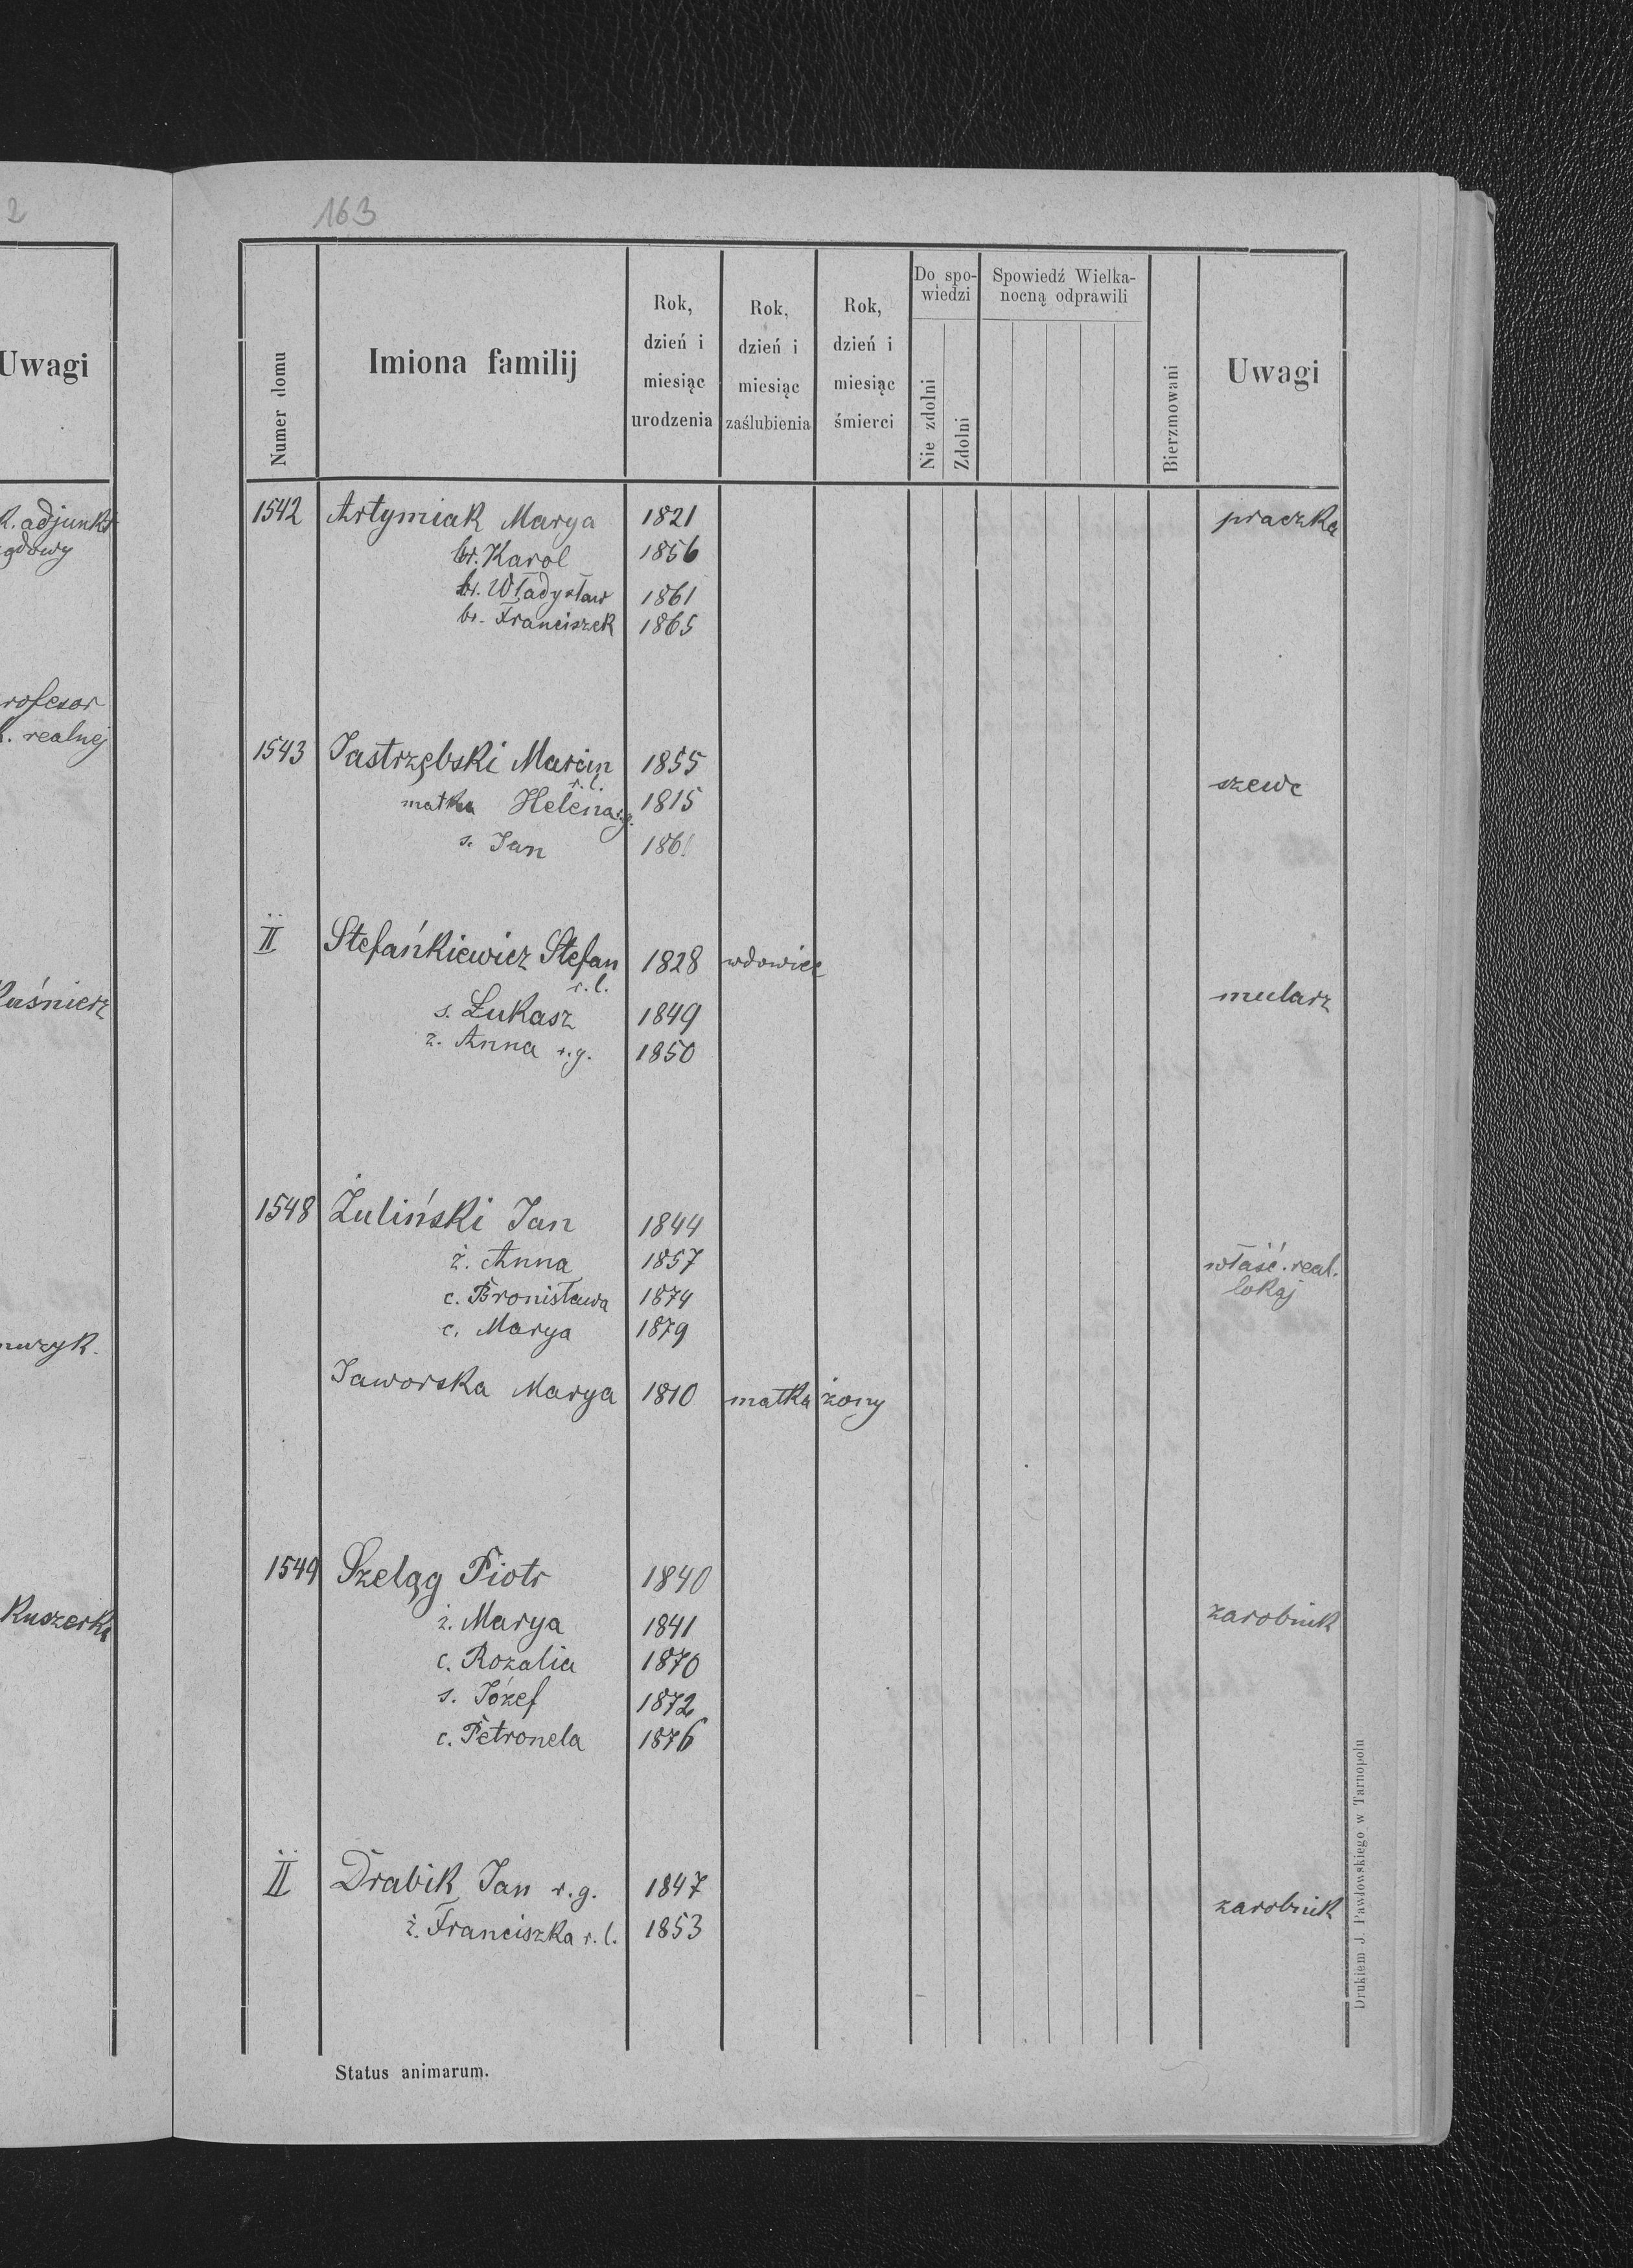 2
163
Uwagi
Numer domu
Imiona familij
Rok, dzień i miesiąc urodzenia
Rok, dzień i miesiąc zaślubienia
Rok, dzień i miesiąc śmierci
Do spo-wiedzi
Nie zdolni
Zdolni
Spowiedź Wielka-nocną odprawili
Bierzmowani
Uwagi
1542 Artymiak Marya 1821 praczka
br. Karol 1856
br. Władysław 1861
br. Franciszek 1865
1543 Jastrzębski Marcin r.l. 1855 szewc
matka Helena r.g. 1815
s. Jan 1861
II Stefańkiewicz Stefan r.l. 1828 wdowiec mularz
s. Łukasz 1849
ż. Anna r.g. 1850
1548 Żuliński Jan 1844
ż. Anna 1857 właść. real.
lokaj
c. Bronisława 1874
c. Marya 1879
Jaworska Marya 1810 matka żony
1549 Szeląg Piotr 1840
ż. Marya 1841 zarobnik
c. Rozalia 1870
s. Józef 1872
c. Petronela 1876
II Drabik Jan r.g. 1847 zarobnik
ż. Franciszka r.l. 1853
Status animarum.
Drukiem J. Pawłowskiego w Tarnopolu